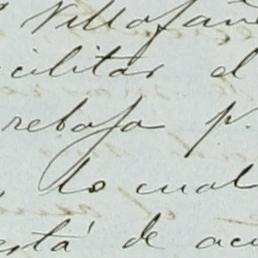 Villafañe
cilitar el
rebaja p.
, lo cual
está de acu